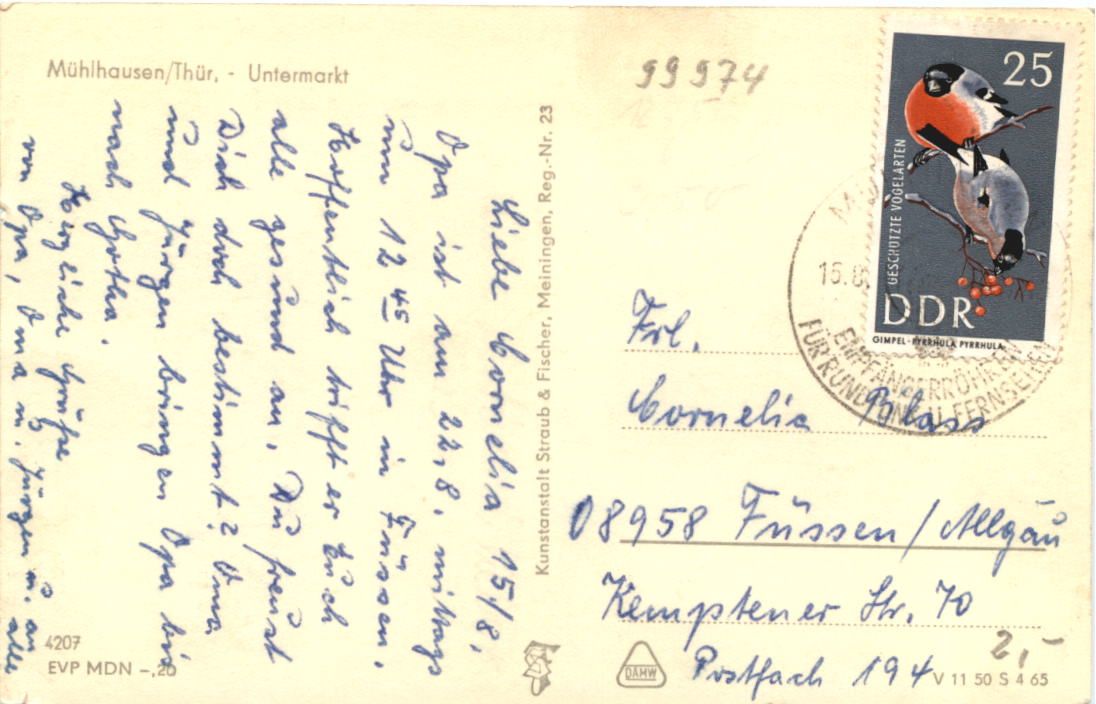 Mühlhausen/Thür, - Untermarkt
Liebe Cornelia 15/8.
Opa ist am 22.8. mittags
um 12 45 Uhr in Füssen.
Hoffentlich trifft er Euch
alle gesund an. Du freust
Dich doch bestimmt? Oma
und Jürgen bringen Opa bis
nach Gotha.
Herzliche Grüße
von Opa, Oma u. Jürgen u. an alle
4207
EVP MDN -,20
Kunstanstalt Straub & Fischer, Meiningen, Reg.-Nr. 23
99974
25
GESCHÜTZTE VOGELARTEN
DDR
GIMPEL-PYRRHULA PYRRHULA
15.8
EMPFÄNGERRÖHREN
FÜR RUNDFUNK U. FERNSEHEN
Frl.
Cornelia Blass
08958 Füssen/Allgäu
Kemptener Str. 70
Postfach 194
2,-
DAMW
V 11 50 S 4 65